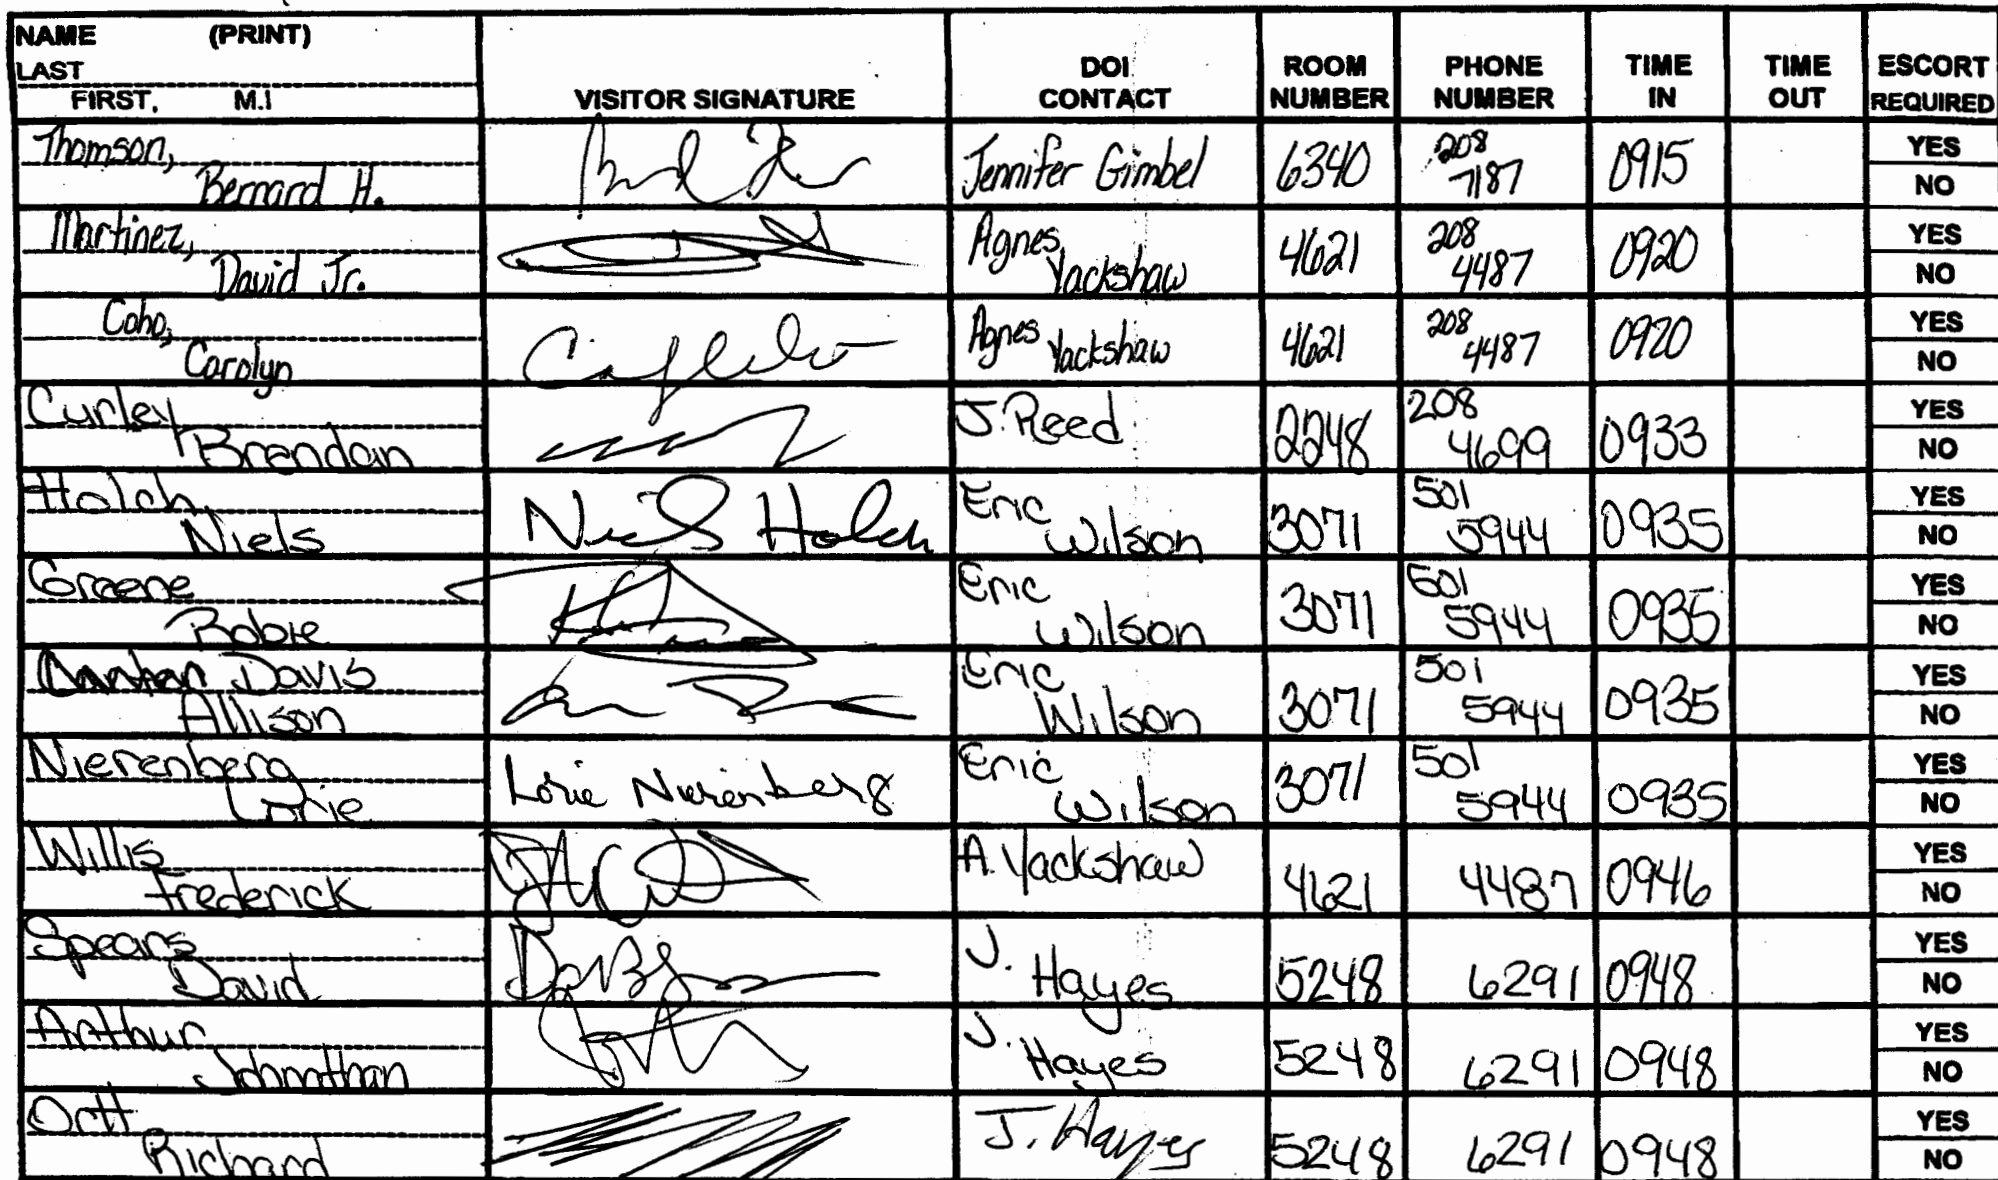 NAME (PRINT)
LAST
FIRST, M.I
VISITOR SIGNATURE
DOI CONTACT
ROOM NUMBER
PHONE NUMBER
TIME IN
TIME OUT
ESCORT REQUIRED
Thomson, Bernard H. Jennifer Gimbel 6340 208 7187 0915 YES NO
Martinez, David Jr. Agnes Yackshaw 4621 208 4487 0920 YES NO
Coho, Carolyn Agnes Yackshaw 4621 208 4487 0920 YES NO
Curley Brendan J. Reed 2248 208 4699 0933 YES NO
Holch Niels Niels Holch Eric Wilson 3071 501 5944 0935 YES NO
Greene Robie Eric Wilson 3071 501 5944 0935 YES NO
Davis Allison Eric Wilson 3071 501 5944 0935 YES NO
Nierenberg Lorie Lorie Nierenberg Eric Wilson 3071 501 5944 0935 YES NO
Willis Frederick A. Yackshaw 4621 4487 0946 YES NO
Spears David J. Hayes 5248 6291 0948 YES NO
Arthur Johnathan J. Hayes 5248 6291 0948 YES NO
Ortt Richard J. Hayes 5248 6291 0948 YES NO